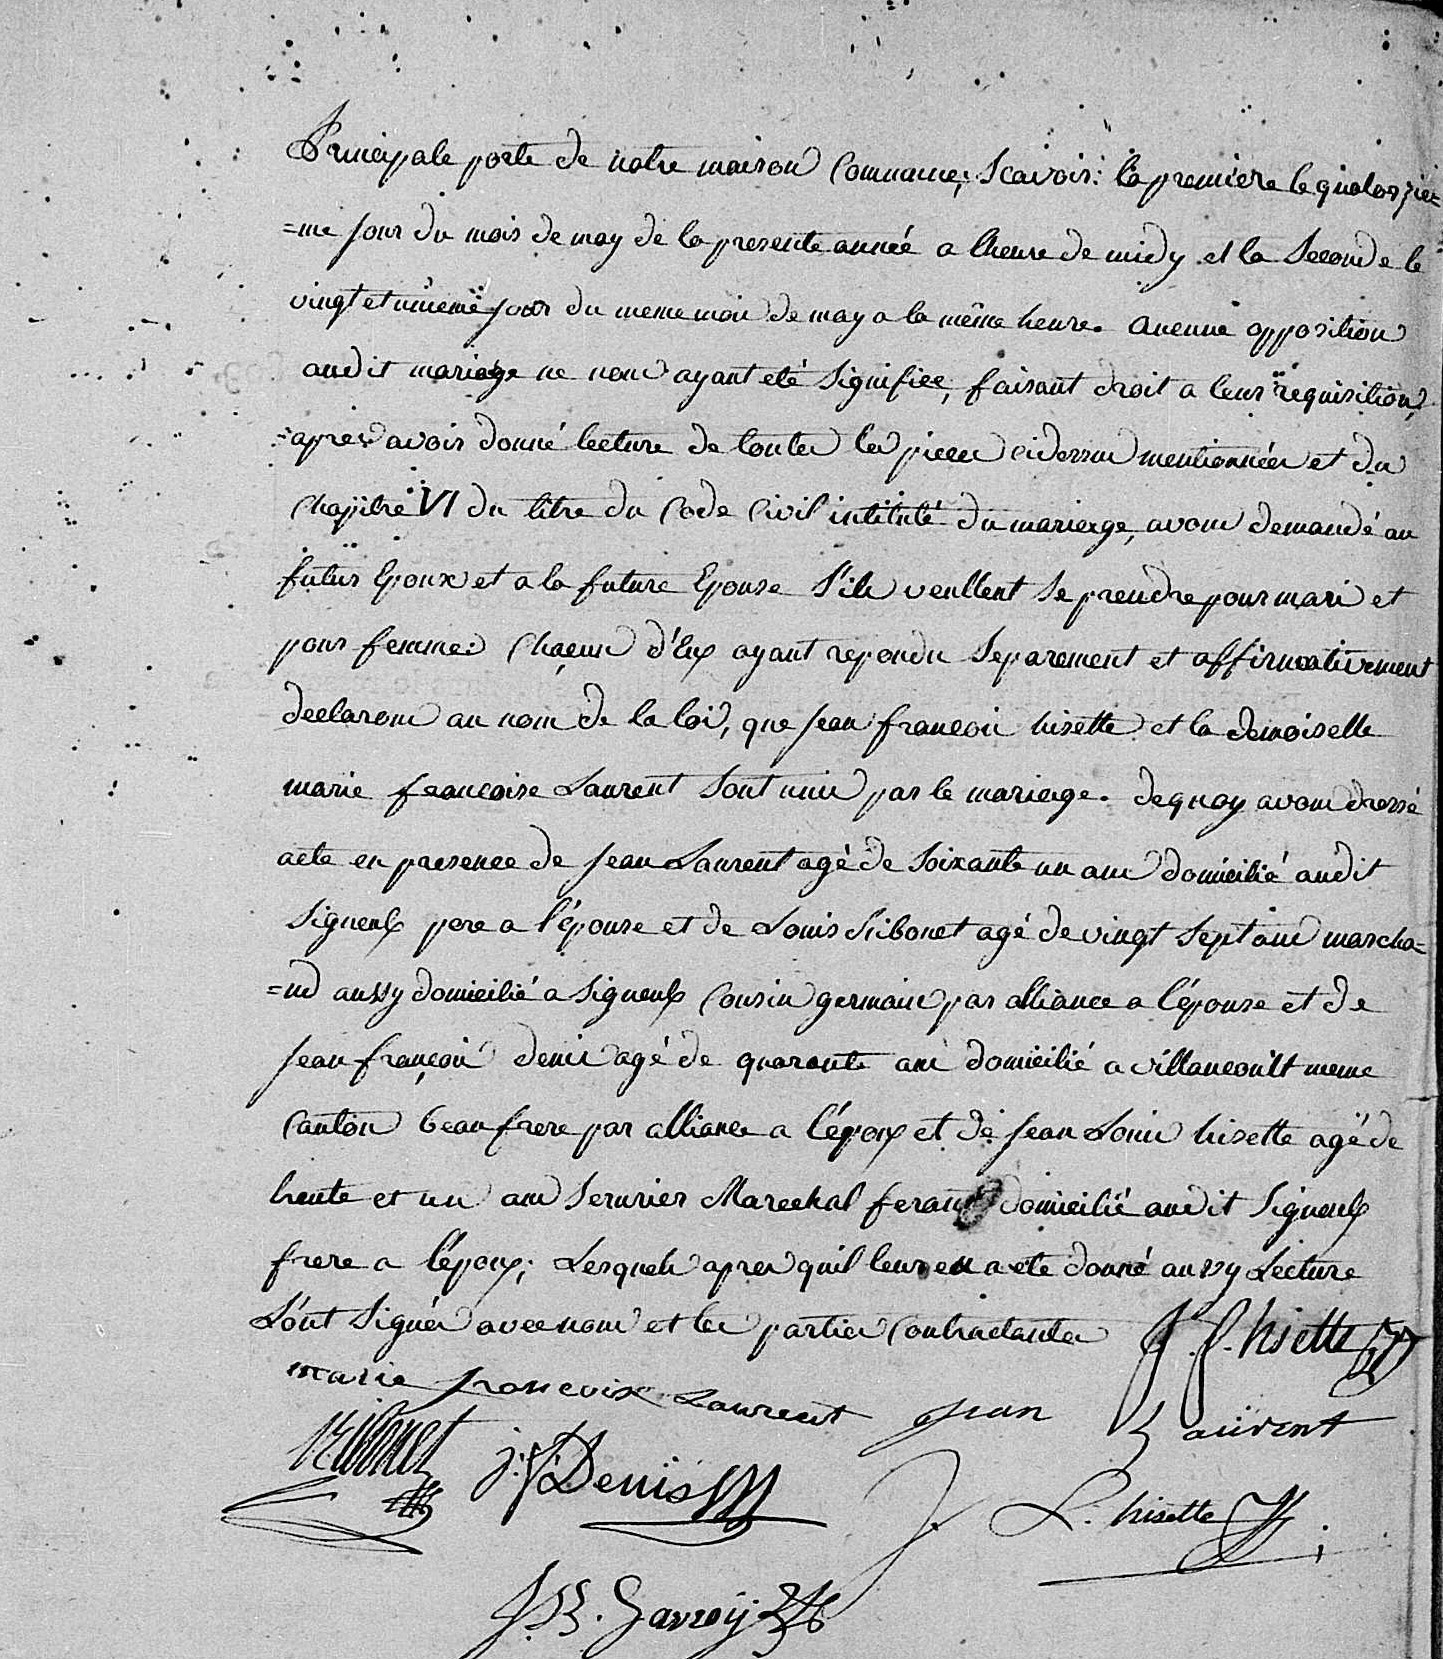 Principale porte de notre maison Commune; Scavoir: la premiere le quatorzie=
=me jour du mois de may de la presente année a lheure de midy et la Seconde le
vingt et unieme jour du meme mois de may a la même heure. aucune opposition
audit mariage ne nous ayant eté Signifiée, faisant droit a leur requisition,
apres avoir donné lecture de toutes les pieces cidessus mentionnées et du
Chapitre VI du titre du Code Civil intitulé du mariage, avons demandé au
futur Epoux et a la future Epouse S'ils veullent Se prendre pour mari et
pour femme: Chacun d'Eux ayant repondu Separement et affirmativement
declarons au nom de la loi, que Jean françois hizette et la demoiselle
marie françoise Laurent Sont unis par le mariage. dequoy avons dressé
acte en presence de Jean Laurent agé de Soixante un ans domicilié audit
Signeulx pere a l'épouse et de Louis Ribonet agé de vingt Sept ans marcha=
=nd aussy domicilié a Signeulx Cousin germain par alliance a l'épouse et de
Jean françois denis agé de quarante ans domicilié a villancourt meme
Canton beaufrere par alliance a l'époux et de Jean Louis hizette agé de
trente et un ans Serurier Marechal ferant domicilié audit Signeulx
frere a l'époux; Lesquels apres quil leur en a ete donné aussy Lecture
L'ont Signés avec nous et les parties Contractantes J. f. hisette
marie francoise Laurent Jean Laurent
Ribonet J: f: Denis J. L. hisette
J. B. Gavroij